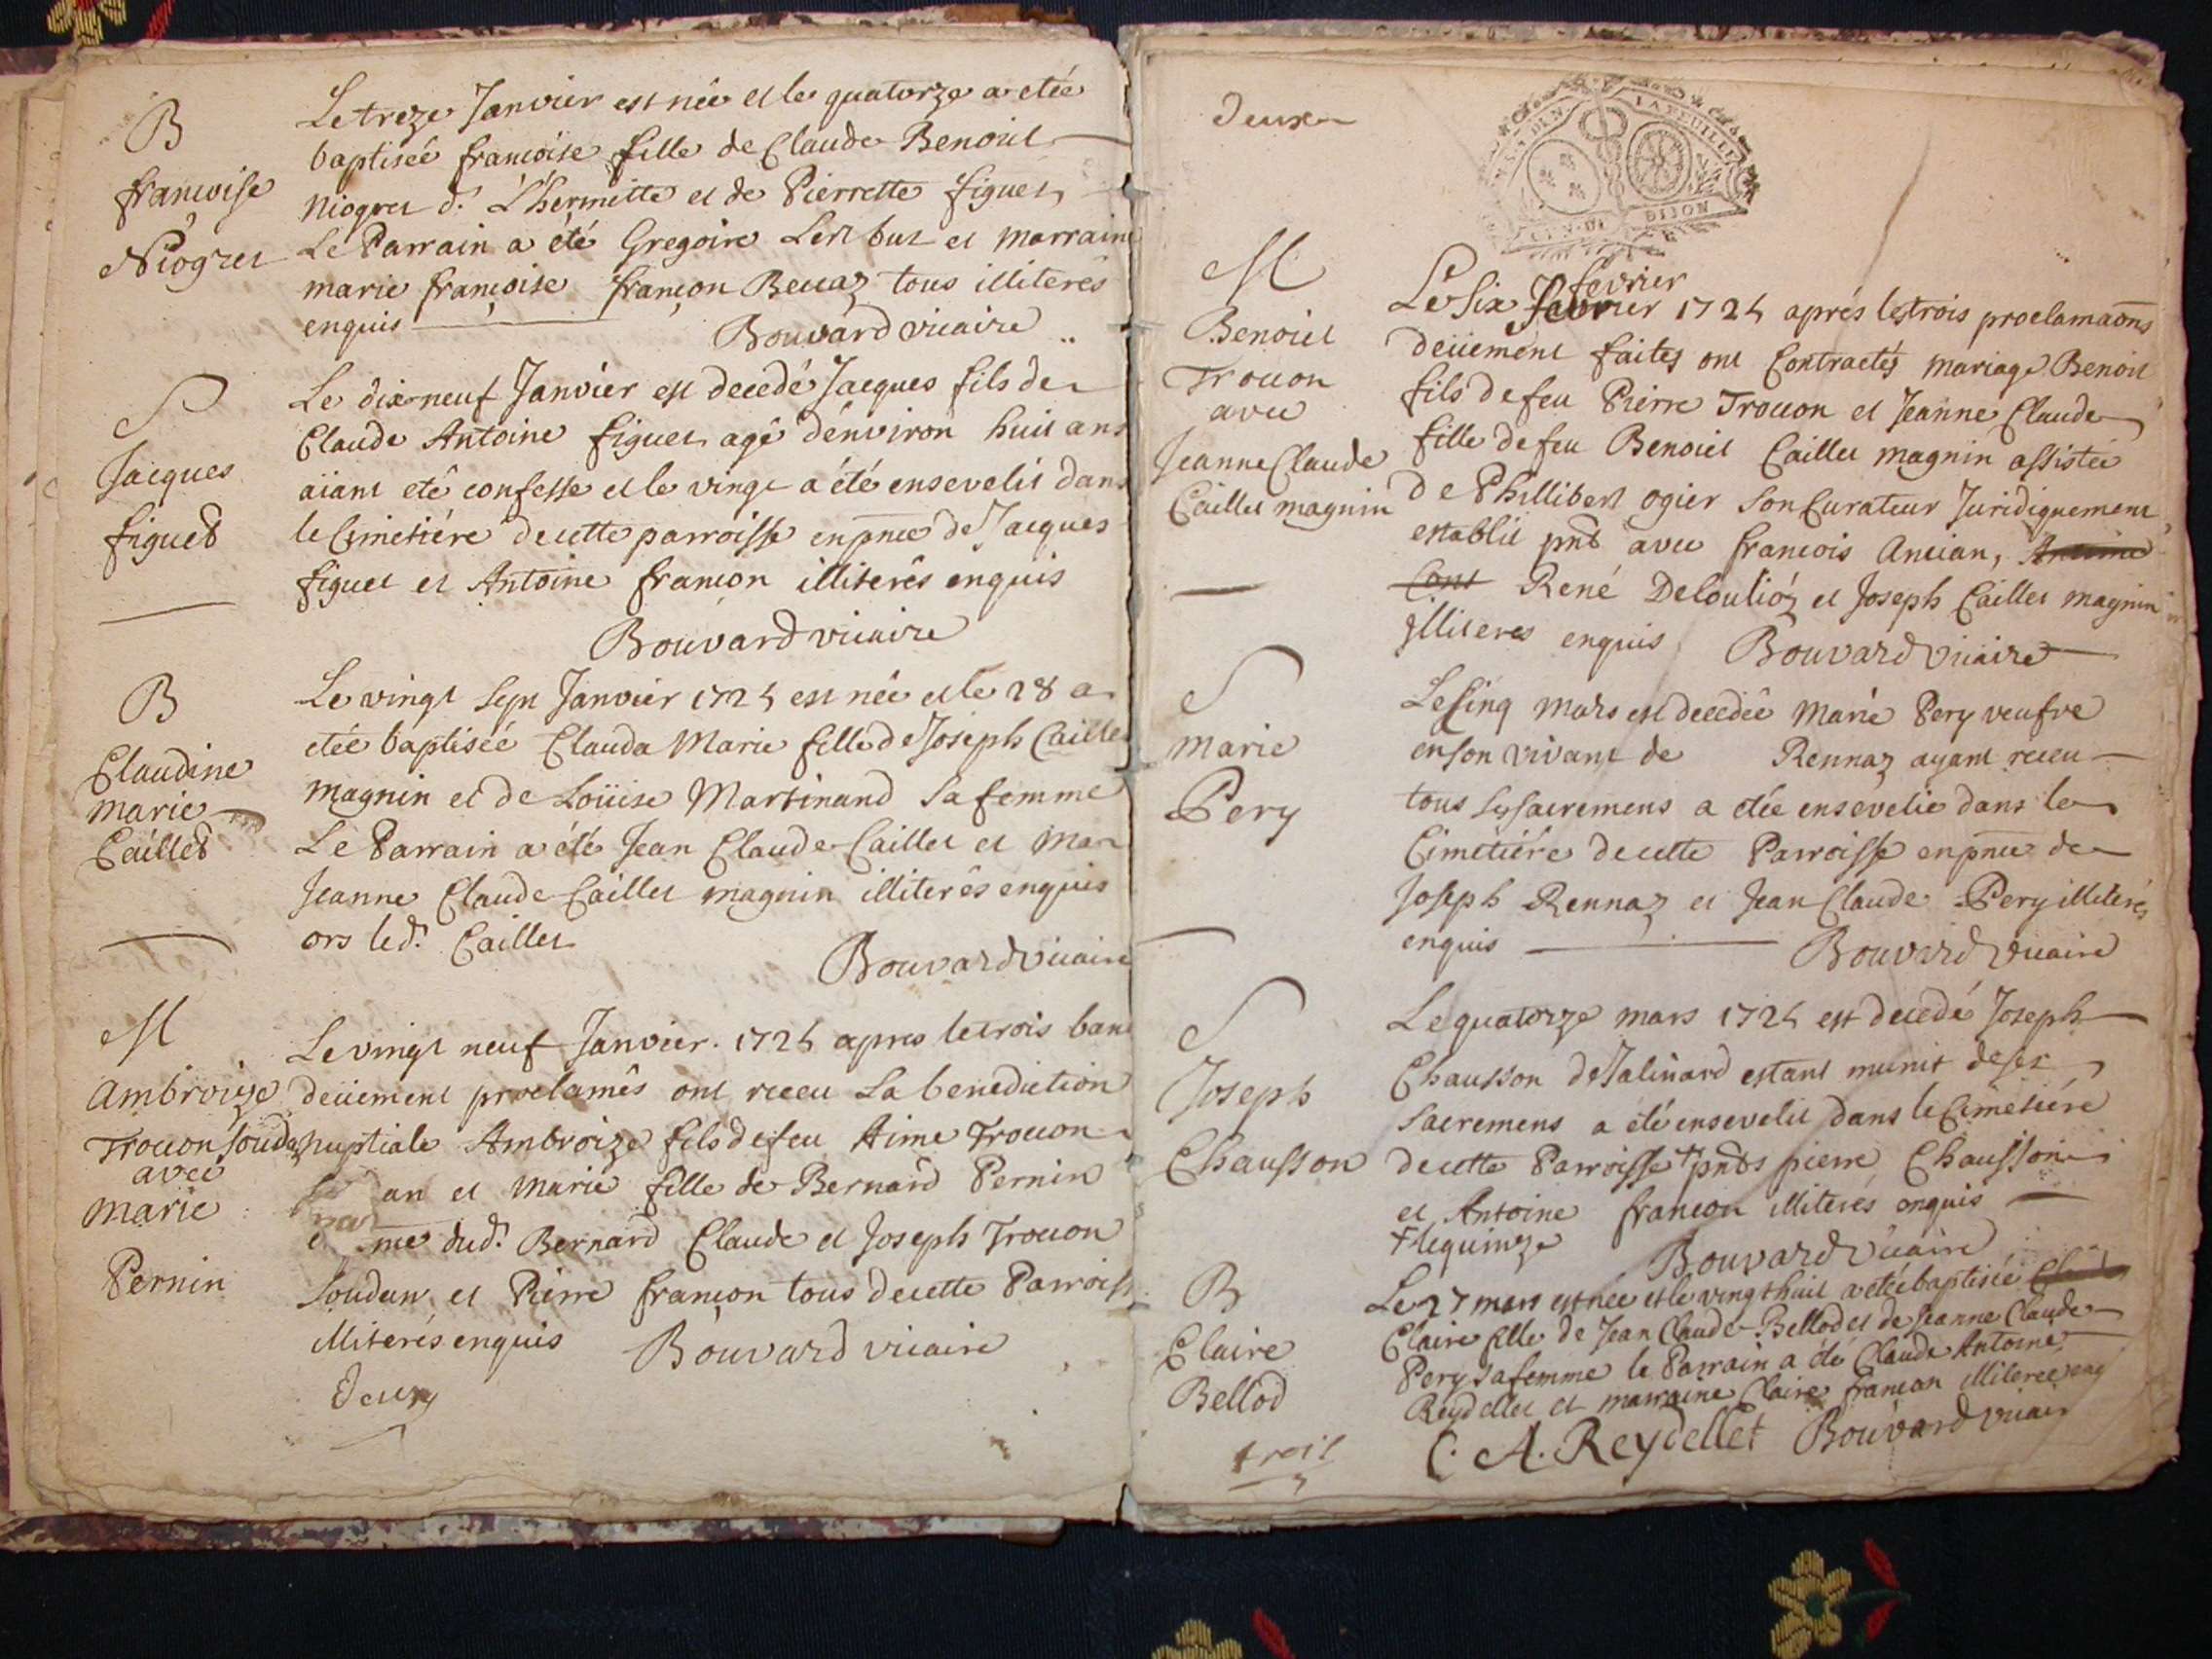 B
francoise
Niogret
Le treze Janvier est née et le quatorze a etée
baptiseé francoise fille de Claude Benoict
Niogret d. L'hermitte et de Pierrette figuet
Le Parrain a été Gregoire et marraine
marie françoise françon Beuaz tous illiterés
enquis Bouvard vicaire
S
Jacques
figuet
Le dix neuf Janvier est decedé Jacques fils de
Claude Antoine figuet agé d'environ huit ans
aiant eté confesse et le vingt a été ensevelit dans
le Cimetiére de cette parroisse en pnce de Jacques
figuet et Antoine francon illiterés enquis
Bouvard vicaire
B
Claudine
marie
Caillet
Le vingt sept Janvier 1725 est née et le 28 a
etée baptiseé Clauda Marie fille de Joseph Caillet
magnin et de Loüise Martinand sa femme
Le Parrain a été Jean Claude Caillet et mar
Jeanne Claude Caillet magnin illiterés enquis
ors led. Caillet
Bouvard vicaire
M
Ambroize
Trocon soudan
avec
marie
Pernin
Le vingt neuf Janvier. 1725 apres les trois bans
deüement proclamés ont receu La benediction
nuptiale Ambroize fils de feu Aime Trocon
an et Marie fille de Bernard Pernin
me dud. Bernard Claude et Joseph Trocon
soudan et Pierre françon tous de cette Parroisse
illiterés enquis Bouvard vicaire
deux
deux
LA FEUILLE
DIJON
M
Benoict
Trocon
avec
Jeanne Claude
Caillet magnin
fevrier
Le six fevrier 1725 aprés les trois proclamaons
deüement faites ont Contractés mariage Benoit
fils de feu Pierre Trocon et Jeanne Claude
fille de feu Benoict Caillet magnin assisteé
de Phillibert ogier son Curateur Juridiquement
establit pnt avec francois Ancian, Antoine
René Deloulioz et Joseph Caillet magnin
illiteres enquis Bouvard vicaire
S
marie
Pery
Le Cinq mars est decedée Marie Pery veufve
en son vivant de Rennaz ayant receu
tous ses sacremens a etée ensevelie dans le
Cimetiére de cette Parroisse en pnce de
Joseph Rennaz et Jean Claude Pery illiterés
enquis Bouvard vicaire
S
Joseph
Chausson
Le quatorze mars 1725 est decedé Joseph
Chausson de Jalinard estant munit de ses
sacremens a été ensevelit dans le Cimetiére
de cette Parroisse + pnts pierre Chausson
et Antoine francon illiterés enquis
+ le quinze
Bouvard vicaire
B
Claire
Bellod
Le 27 mars est née et le vingt huit a etée baptisée
Claire fille de Jean Claude Bellod et de Jeanne Claude
Pery sa femme le Parrain a été Claude Antoine
Reydellet et marraine Claire francon illiteree enq
C. A. Reydellet Bouvard vicair
trois